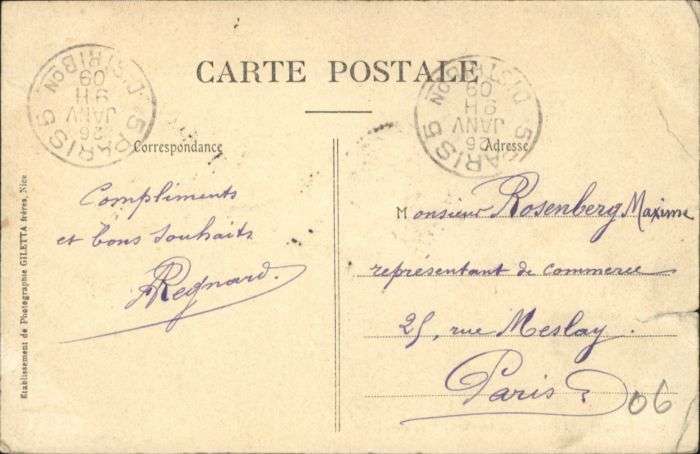 CARTE POSTALE
PARIS 5 DISTRIBON 5
9H
26 JANV 09
PARIS 5 DISTRIBON 5
9H
26 JANV 09
Correspondance
Compliments
et bons souhaits
Regnard.
Adresse
Monsieur Rosenberg Maxime
representant de commerce
25, rue Meslay.
Paris
06
Etablissement de Photographie GILETTA frères, Nice